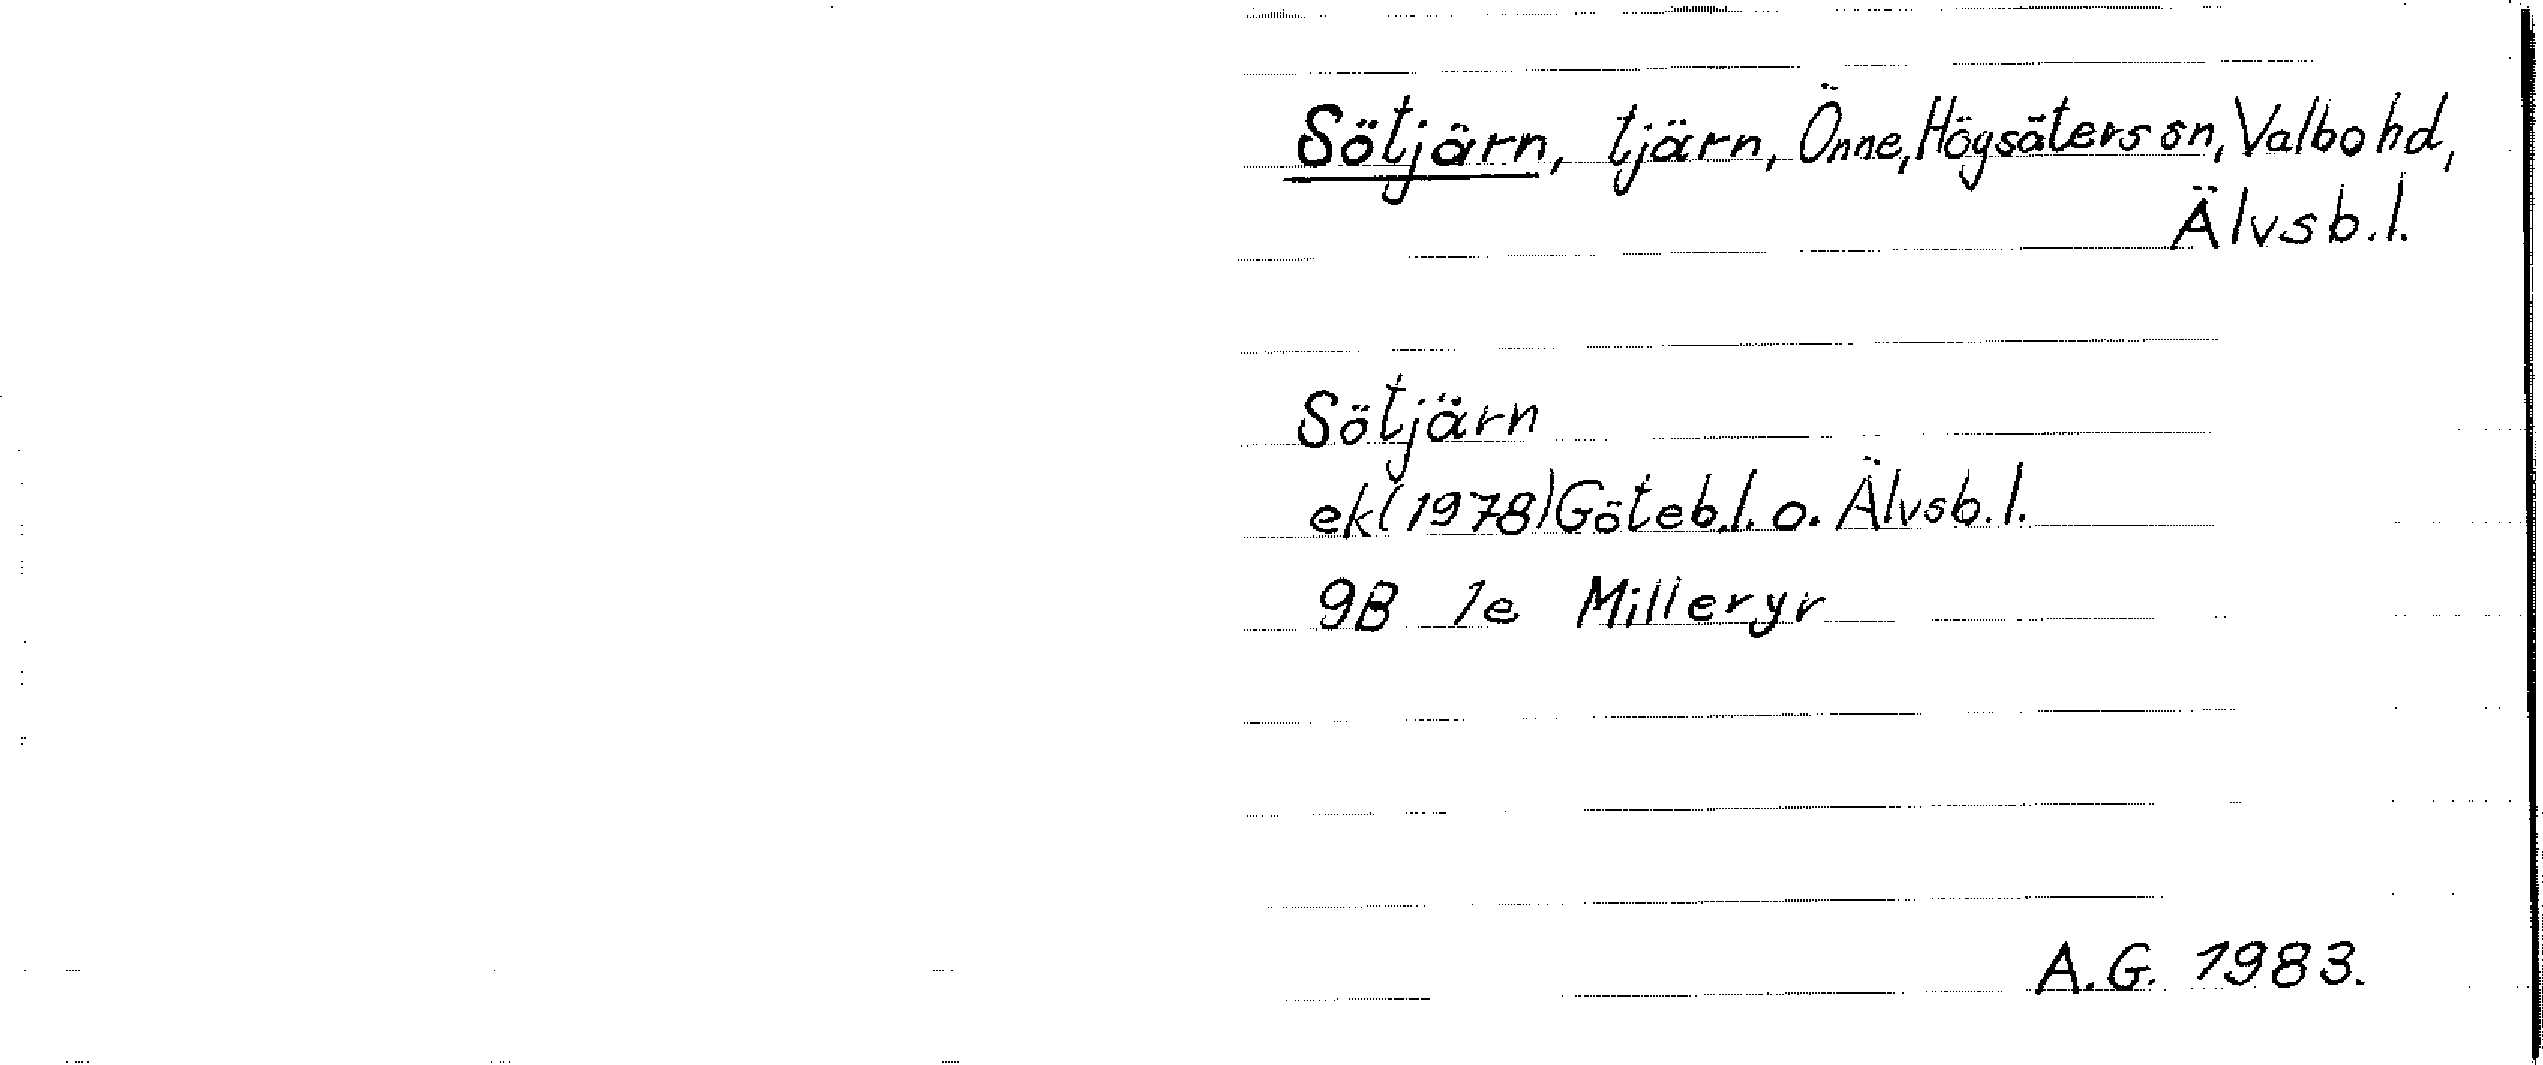 Sötjärn, tjärn, Önne, Högsäters sn, Valbo hd,
Älvsb.l.
Sötjärn
ek (1978) Göteb.l. o. Älvsb.l.
9B 1e Milleryr
A.G. 1983.